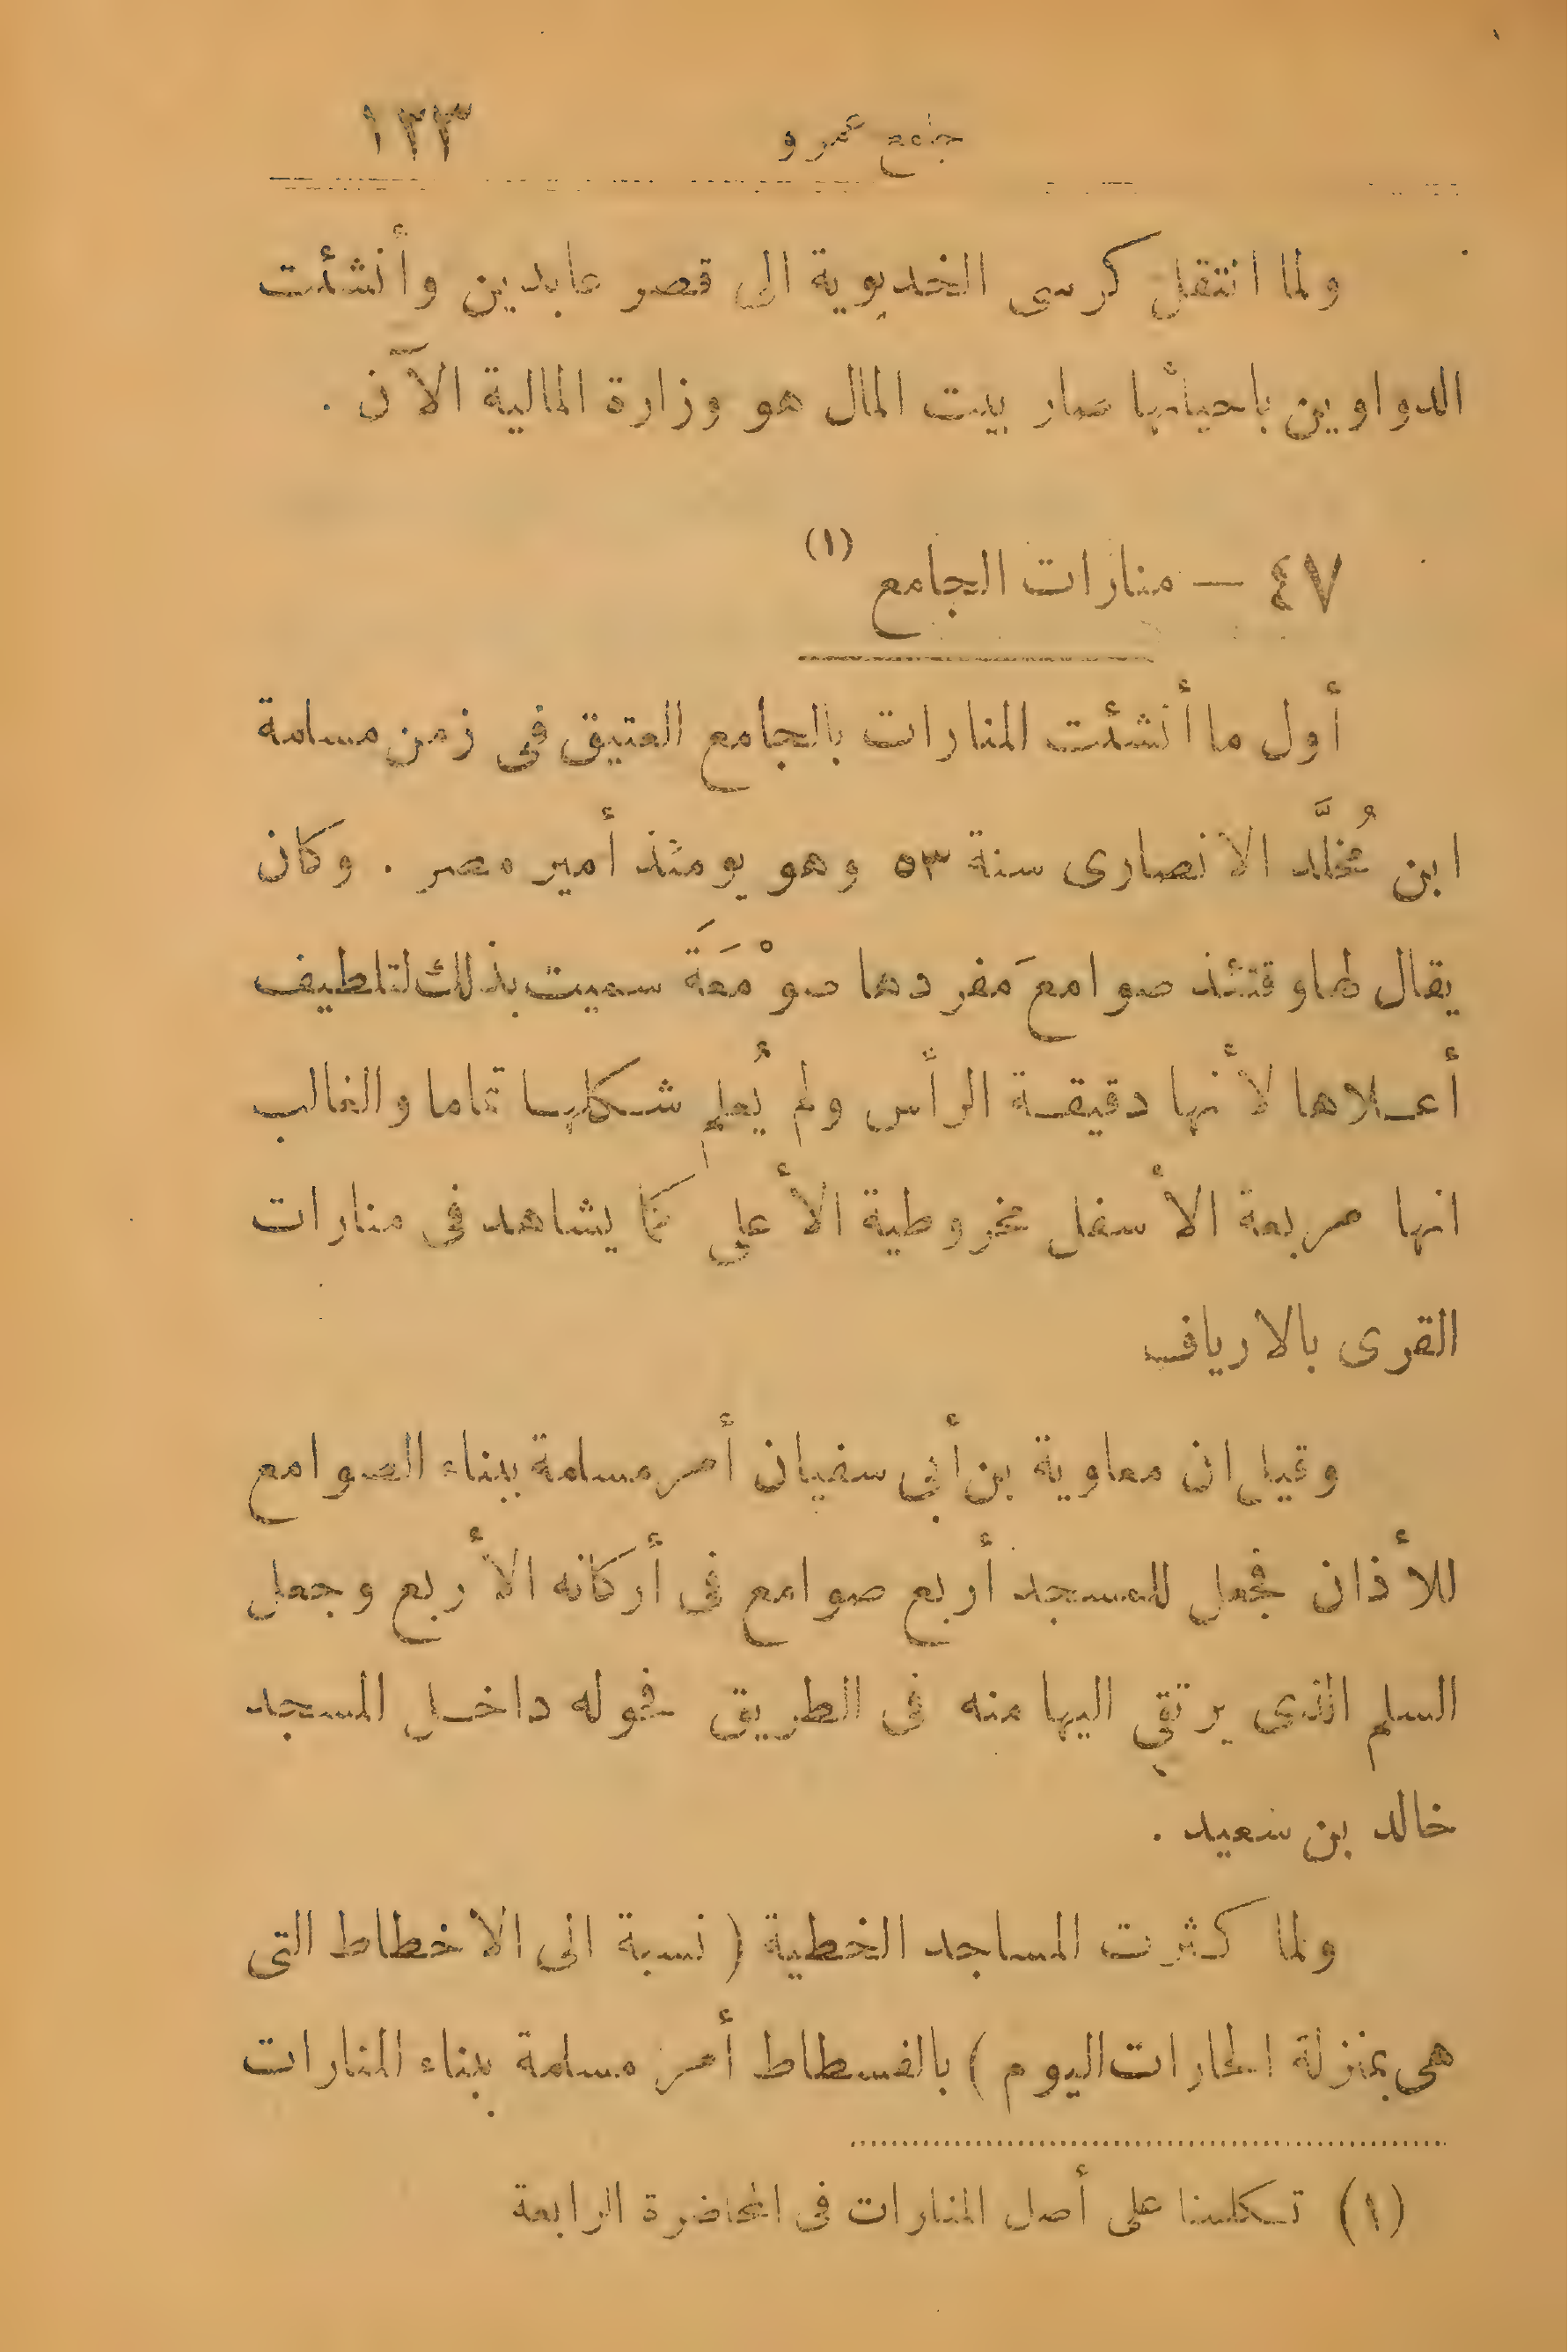 جامع عمرو ١٣٣
ولما انتقل كرسى الخديوية الى قصر عابدين وأنشئت
الدواوين باحيائها صار بيت المال هو وزارة المالية الآن .
٤٧ — منارات الجامع (١)
أول ما أنشئت المنارات بالجامع العتيق فى زمن مسلمة
ابن مُخلَّد الانصارى سنة ٥٣ وهو يومئذ أمير مصر . وكان
يقال لها وقتئذ صوامعَ مفردها صوْمَعَةَ سميت بذلك لتلطيف
أعلاها لأنها دقيقة الرأس ولم يُعلم شكلها تماما والغالب
انها مربعة الأسفل مخروطية الأعلى كما يشاهد فى منارات
القرى بالارياف
وقيل ان معاوية بن أبى سفيان أمر مسلمة ببناء الصوامع
للأذان فجعل للمسجد أربع صوامع فى أركانه الأربع وجعل
السلم الذى يرتقي اليها منه فى الطريق فحوله داخل المسجد
خالد بن سعيد .
ولما كثرت المساجد الخطية ( نسبة الى الاخطاط التى
هى بمنزلة الحارات اليوم ) بالفسطاط أمر مسلمة ببناء المنارات
(١) تكلمنا على أصل المنارات فى المحاضرة الرابعة